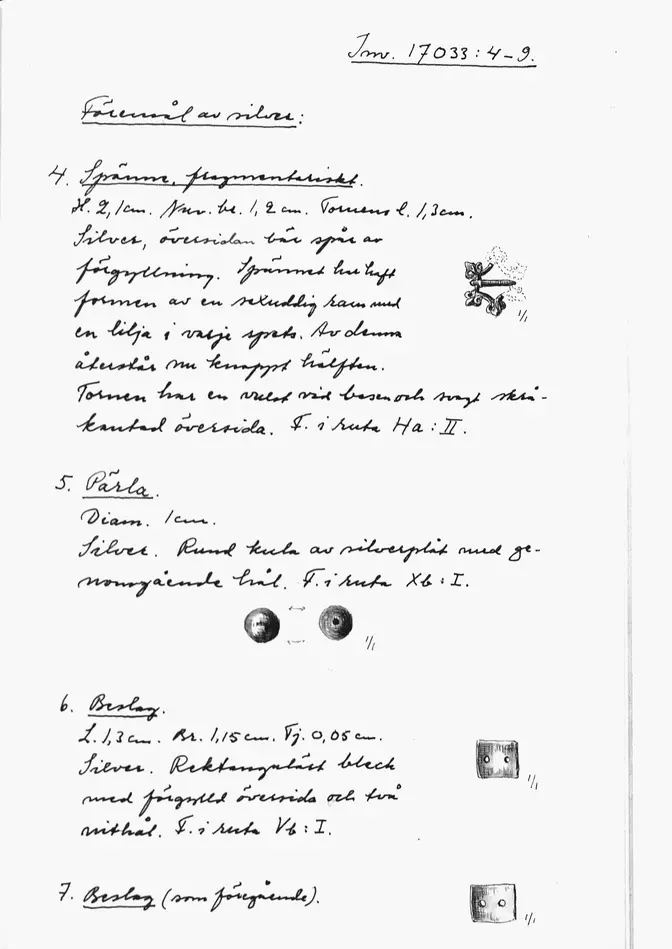 Inv. 17033:4-9.
Föremål av silver:
4. Spänne, fragmentariskt.
H. 2,1cm. Nuv. br. 1,2cm. Tornens l. 1,3cm.
Silver, översidan bär spår av
förgyllning. Spännet har haft
formen av en sexuddig ram med
en lilja i varje spets. Av denna
återstår nu knappt hälften.
Tornen har en vulst vid basen och svagt skrå-
kantad översida. F. i ruta Ha:II.
1/1
5. Pärla.
Diam. 1cm.
Silver. Rund kula av silverplåt med ge-
nomgående hål. F. i ruta Xb:I.
1/1
6. Beslag.
L. 1,3cm. Br. 1,15cm. Tj. 0,05cm.
Silver. Rektangulärt bleck
med förgylld översida och två
nithål. F. i ruta Vb:I.
1/1
7. Beslag (som föregående).
1/1